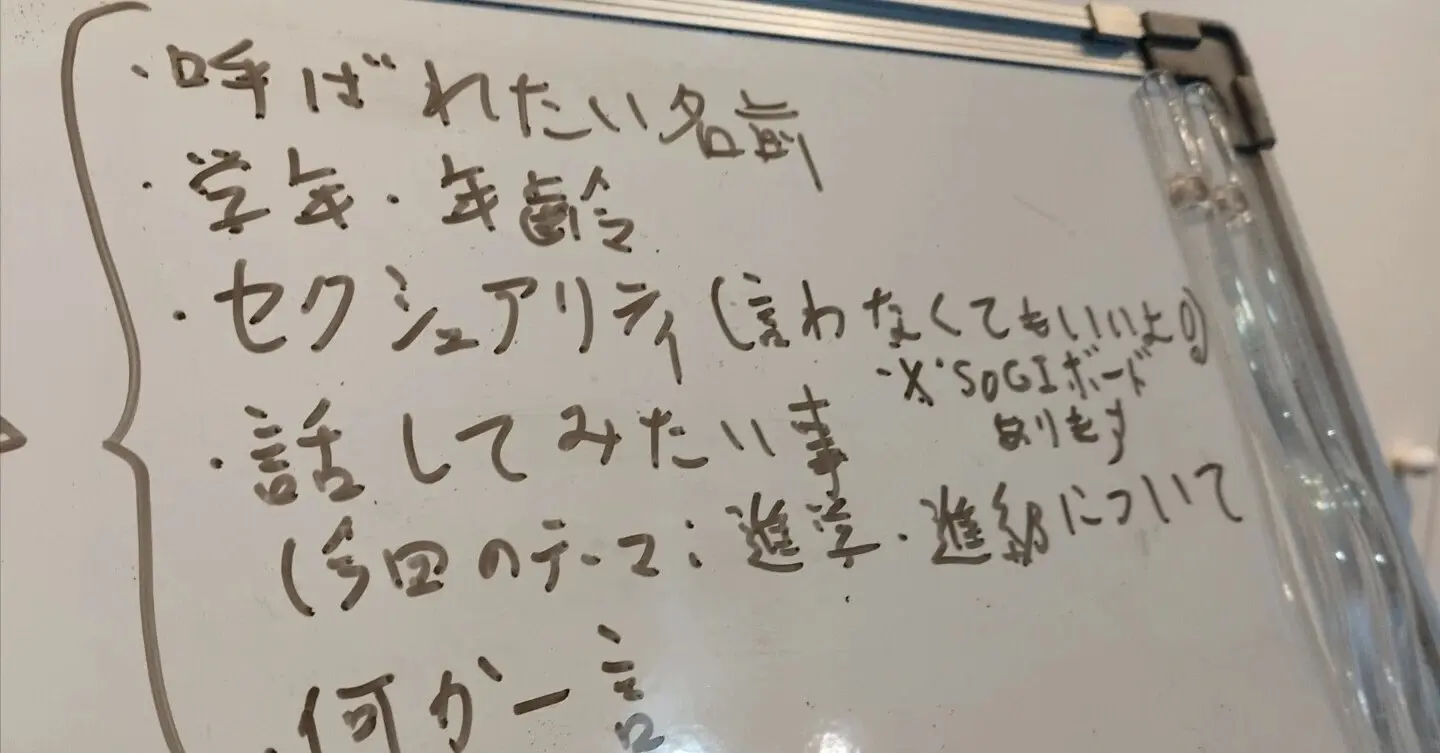 ・呼ばれたい名前
・学年・年齢
・セクシュアリティ(言わなくてもいいよ!)
※SOGIボード
あります
・話してみたい事
(今回のテーマ:進学・進級について
・何か一言